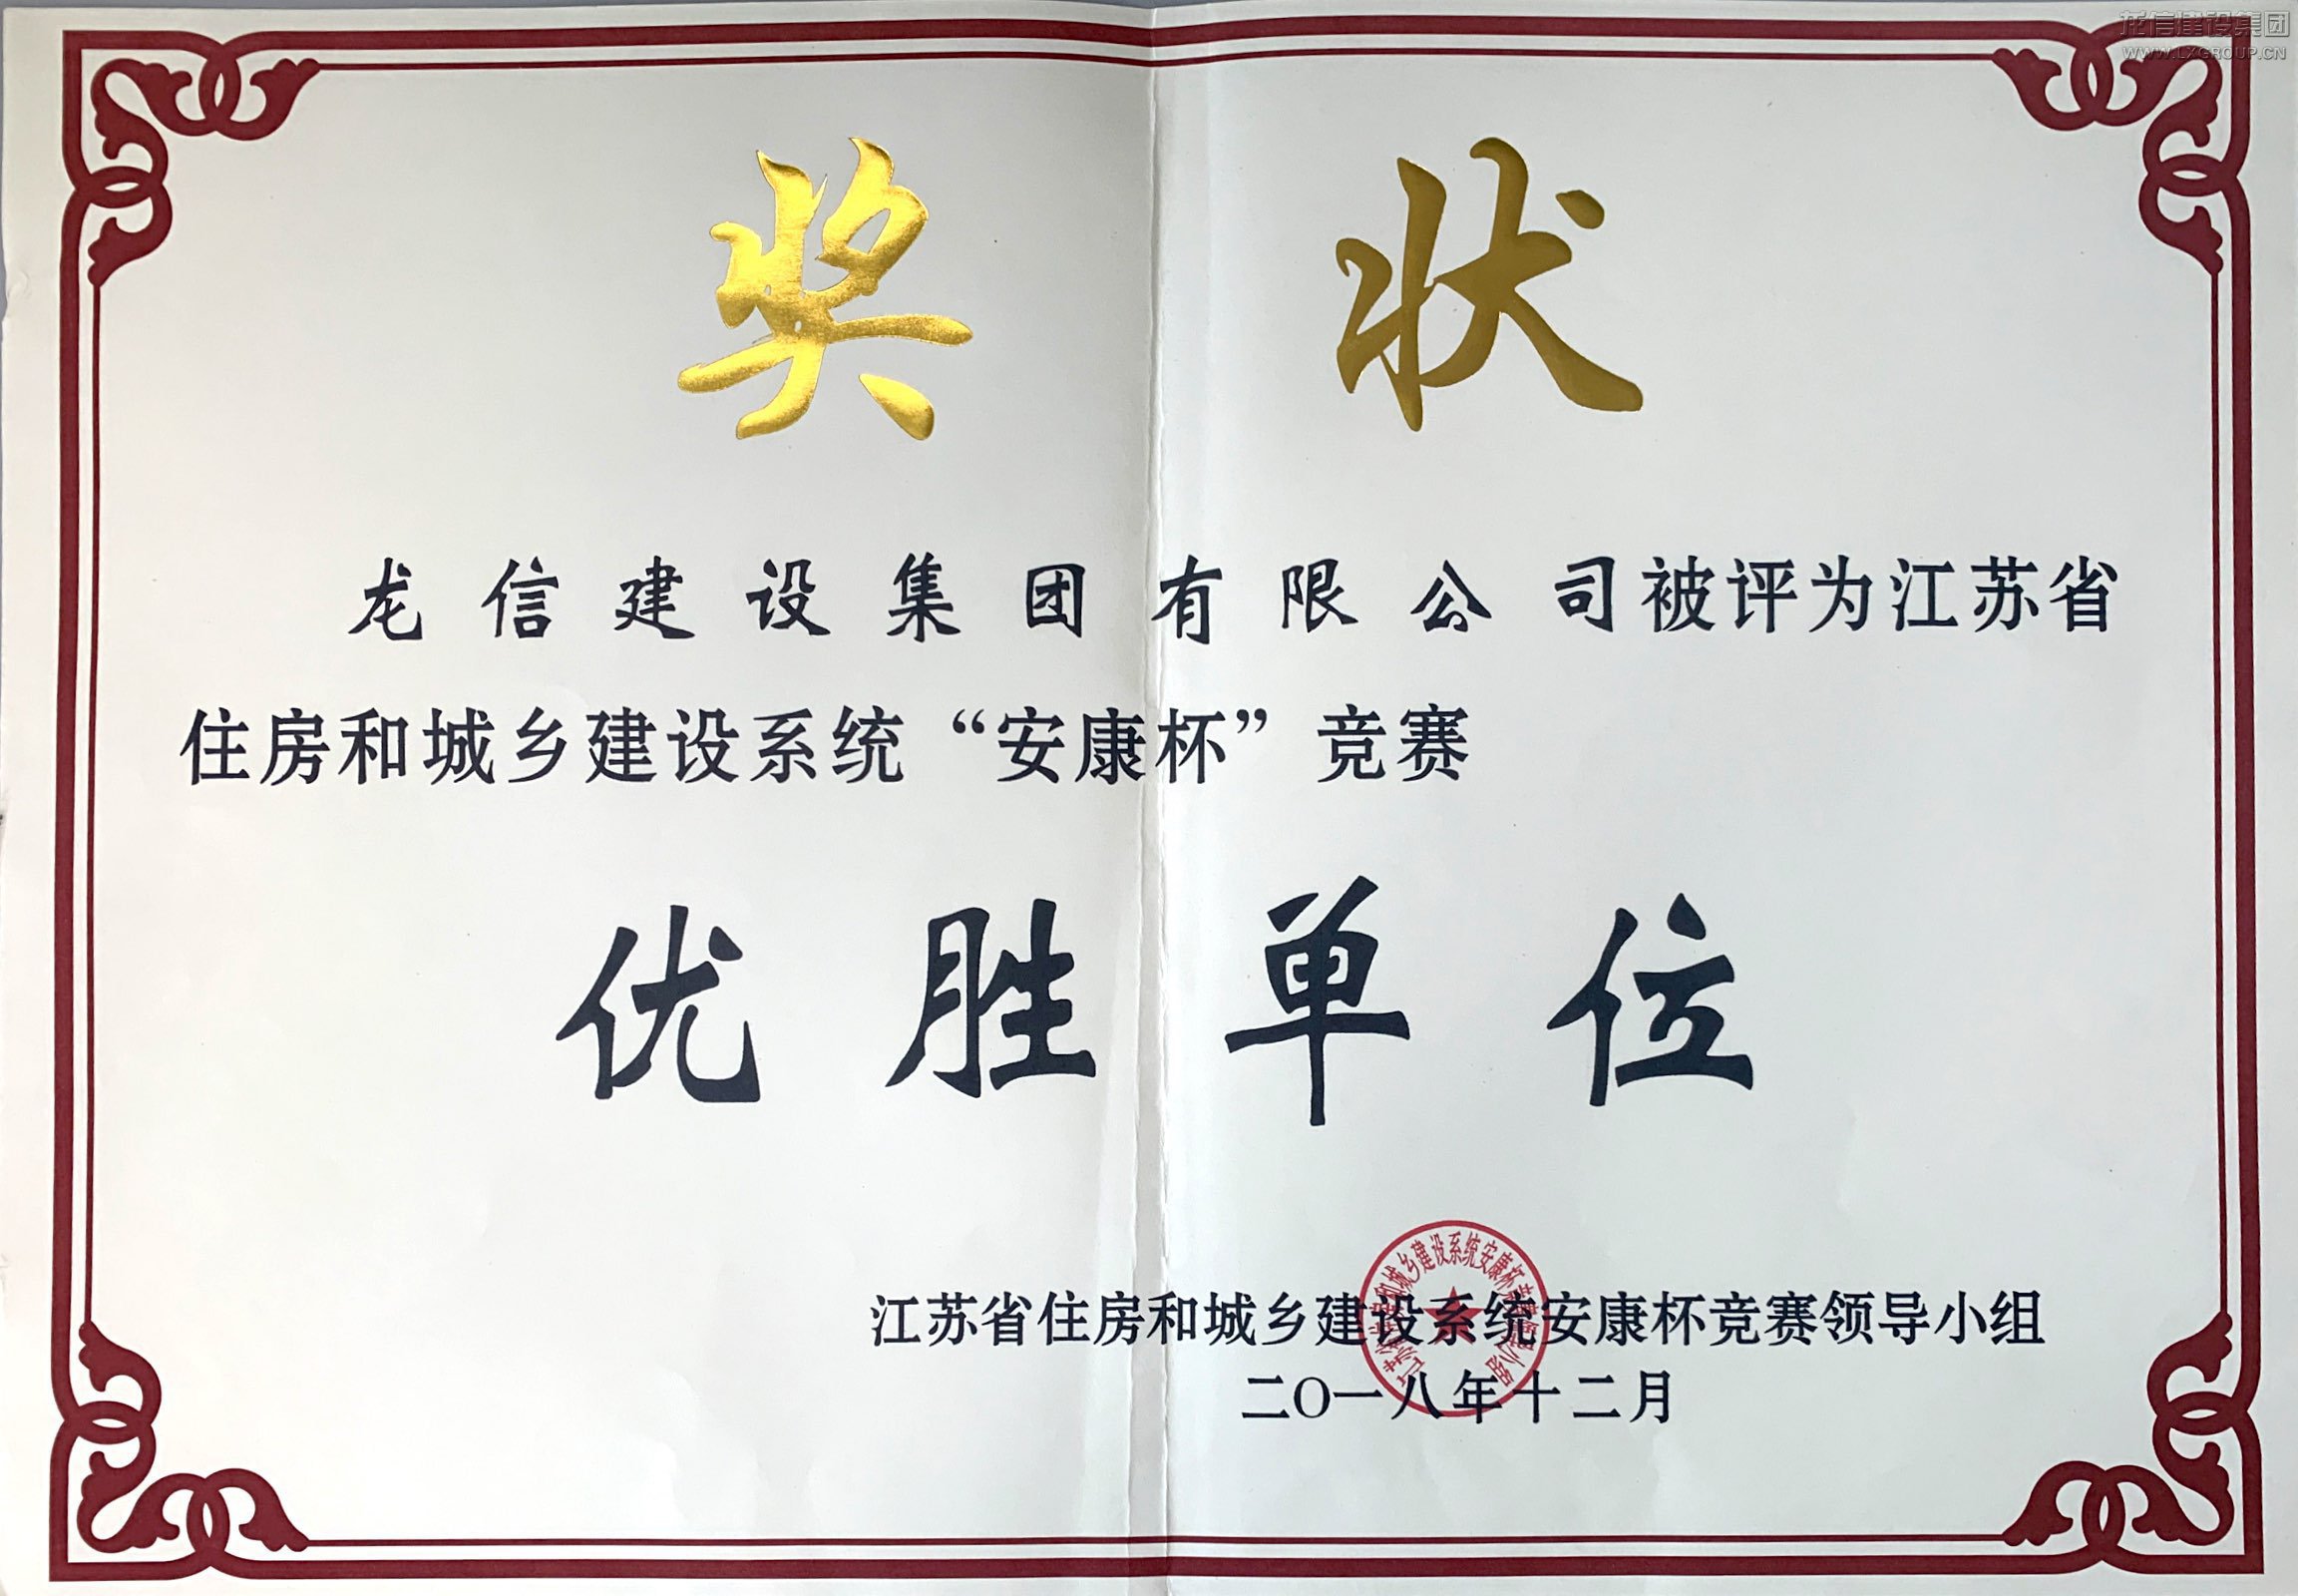 龙信建设集团
WWW.LXGROUP.CN
奖状
龙信建设集团有限公司被评为江苏省
住房和城乡建设系统“安康杯”竞赛
优胜单位
江苏省住房和城乡建设系统安康杯竞赛领导小组
江苏省住房和城乡建设系统安康杯竞赛领导小组
二〇一八年十二月